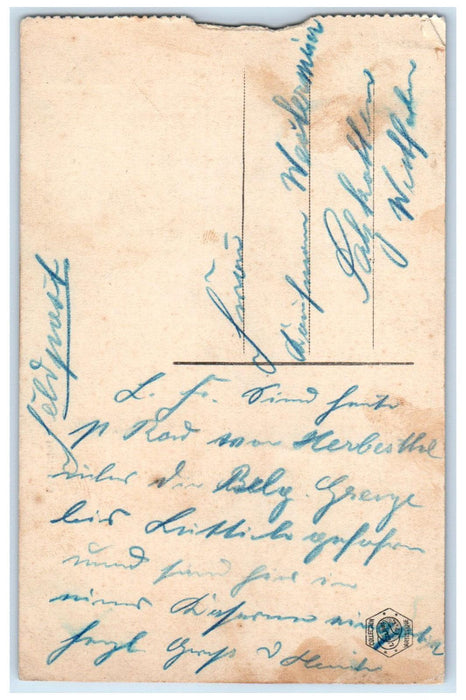 Feldpost
Frau
Kaufmann Westermeier
Salzkotten
Westfalen
L. Fr. Sind heute
p Rad von Herbesthal
über die Belg. Grenze
bis Lüttich gefahren
und sind hier in
einer Kaserne
herzl. Gruß